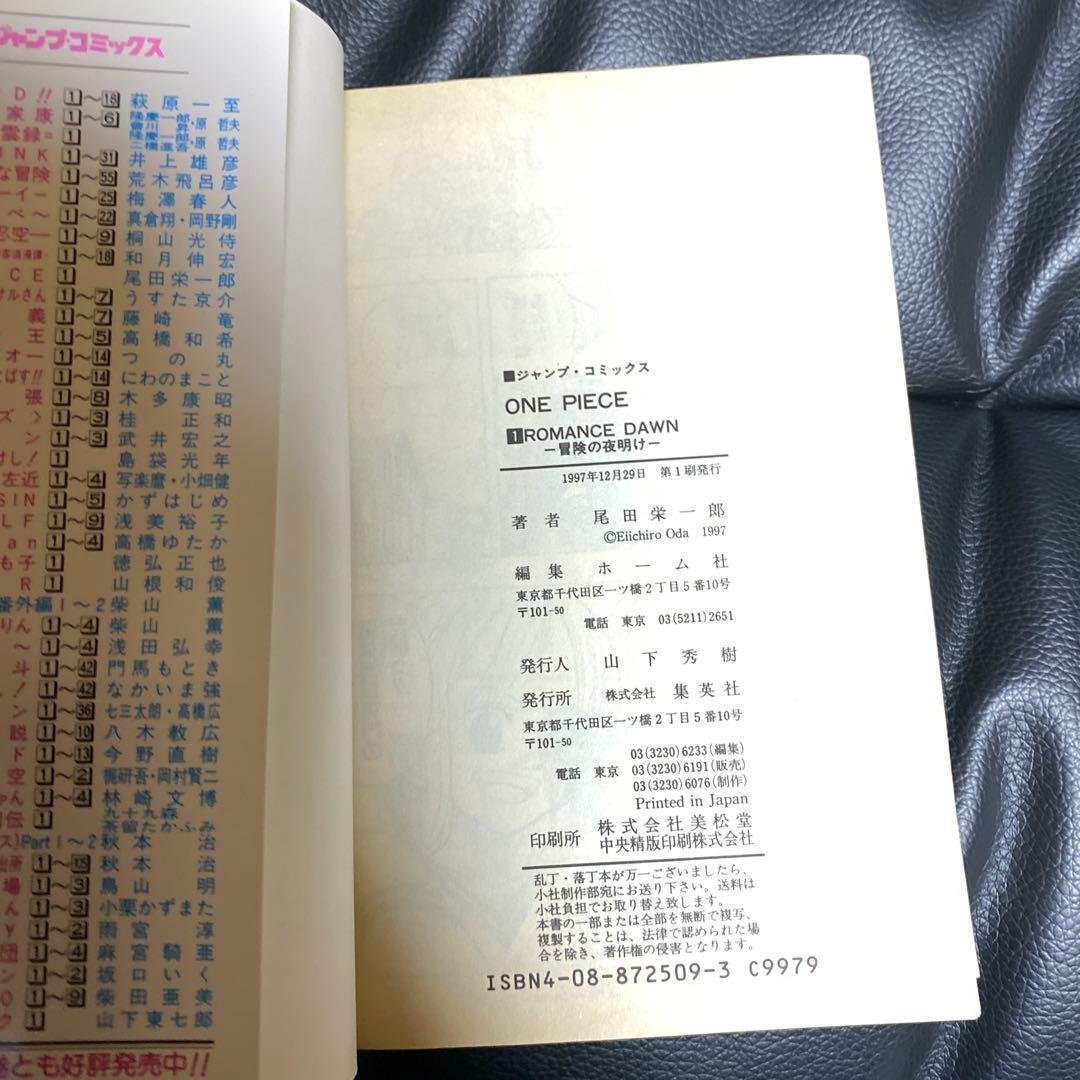 ジャンプ・コミックス
D!! 1〜18 萩原一至
家康 1〜6 隆慶一郎・會川昇・原哲夫
雲録= 1 隆慶一郎・二橋進吾・原哲夫
UNK 1〜31 井上雄彦
な冒険 1〜55 荒木飛呂彦
ーイー 1〜25 梅澤春人
べ〜 1〜22 真倉翔・岡野剛
忍空― 1〜9 桐山光侍
客浪漫譚- 1〜18 和月伸宏
CE 1 尾田栄一郎
サルさん 1〜7 うすた京介
義 1〜7 藤崎竜
王 1〜5 高橋和希
オー 1〜14 つの丸
ばす!! 1〜14 にわのまこと
張 1〜8 木多康昭
ズ〉 1〜3 桂正和
ン 1〜3 武井宏之
けし! 1 島袋光年
左近 1〜4 写楽麿・小畑健
SIN 1〜5 かずはじめ
LF 1〜9 浅美裕子
an 1〜4 高橋ゆたか
も子 1 徳弘正也
R 1 山根和俊
番外編1〜2 柴山薫
りん 1〜4 柴山薫
〜 1〜4 浅田弘幸
斗 1〜42 門馬もとき
! 1〜42 なかいま強
ン 1〜36 七三太朗・高橋広
説 1〜10 八木教広
ド 1〜13 今野直樹
空 1〜2 梶研吾・岡村賢二
ゃん 1〜4 林崎文博
伝 1 九十九森・茶留たかふみ
ス)Part1〜2 秋本治
出所 1〜 秋本治
場 1〜3 鳥山明
ん 1〜3 小栗かずまた
Y 1〜2 雨宮淳
団 1〜4 麻宮騎亜
ン 1〜2 坂口いく
o 1〜9 柴田亜美
ク 1 山下東七郎
とも好評発売中!!
■ジャンプ・コミックス
ONE PIECE
1ROMANCE DAWN
―冒険の夜明け―
1997年12月29日 第1刷発行
著者 尾田栄一郎
©Eiichiro Oda 1997
編集 ホーム社
東京都千代田区一ツ橋2丁目5番10号
〒101-50
電話 東京 03(5211)2651
発行人 山下秀樹
発行所 株式会社 集英社
東京都千代田区一ツ橋2丁目5番10号
〒101-50
03(3230)6233(編集)
電話 東京 03(3230)6191(販売)
03(3230)6076(制作)
Printed in Japan
印刷所 株式会社美松堂
中央精版印刷株式会社
乱丁・落丁本が万一ございましたら、
小社制作部宛にお送り下さい。送料は
小社負担でお取り替え致します。
本書の一部または全部を無断で複写、
複製することは、法律で認められた場
合を除き、著作権の侵害となります。
ISBN4-08-872509-3 C9979